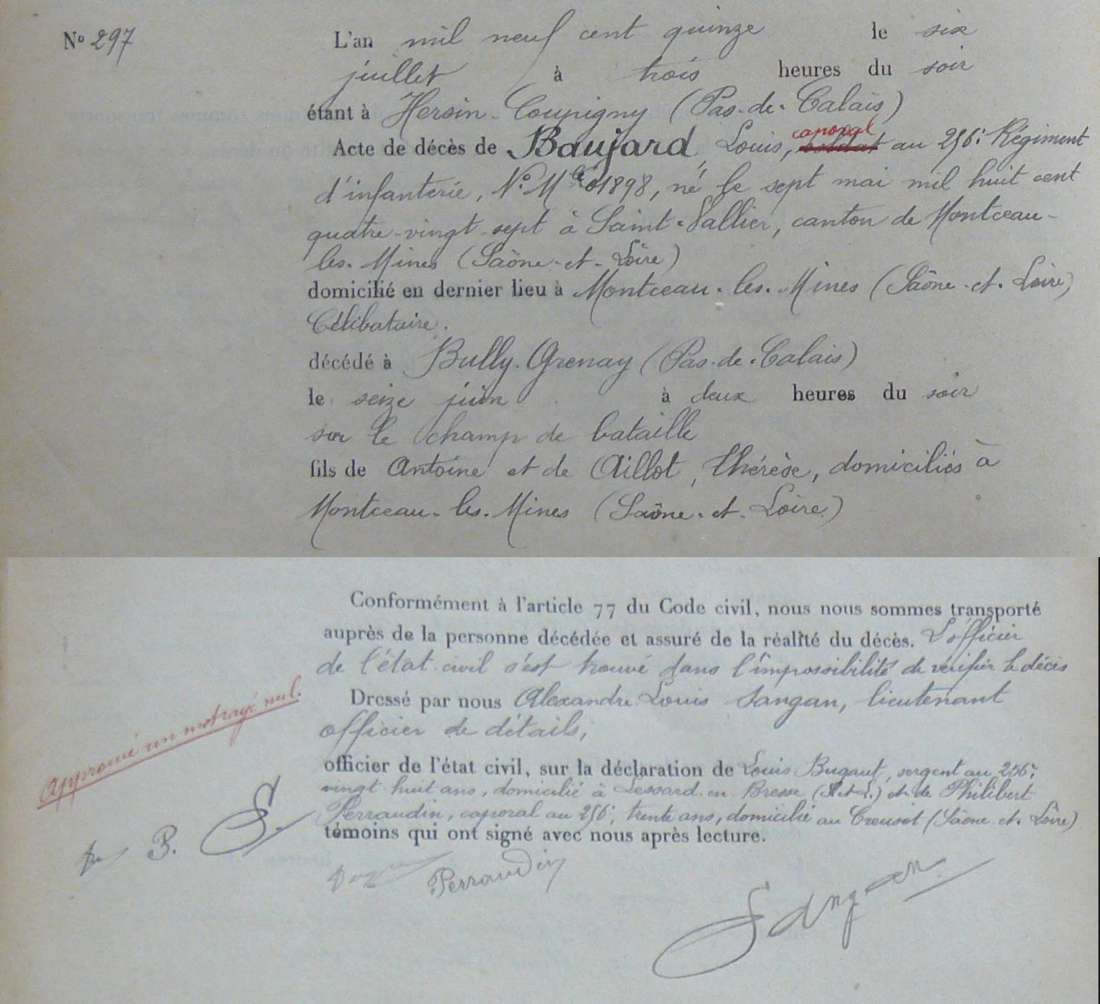 N° 297
L'an mil neuf cent quinze le six
juillet à trois heures du soir
étant à Hersin-Coupigny (Pas-de-Calais)
caporal
Acte de décès de Baujard Louis, soldat au 256e Régiment
d'infanterie, N° Mle 01898, né le sept mai mil huit cent
quatre-vingt-sept à Saint-Vallier, canton de Montceau-
les-Mines (Saône-et-Loire)
domicilié en dernier lieu à Montceau-les-Mines (Saône-et-Loire)
Célibataire.
décédé à Bully-Grenay (Pas-de-Calais)
le seize juin à deux heures du soir
sur le champ de bataille
fils de Antoine et de Aillot, Thérèse, domiciliés à
Montceau-les-Mines (Saône-et-Loire)
Conformément à l'article 77 du Code civil, nous nous sommes transporté
auprès de la personne décédée et assuré de la réalité du décès. L'officier
de l'état-civil s'est trouvé dans l'impossibilité de vérifier le décès
Dressé par nous Alexandre Louis Sangan, lieutenant
officier de détails,
officier de l'état civil, sur la déclaration de Louis Bugaut, sergent au 256e,
vingt huit ans, domicilié à Lessard-en-Bresse (S.-et-L.) et de Philibert
Perraudin, caporal au 256e, trente ans, domicilié au Creusot (Saône-et-Loire)
témoins qui ont signé avec nous après lecture.
approuvé un mot rayé nul.
P. S.
Perraudin
Sangan